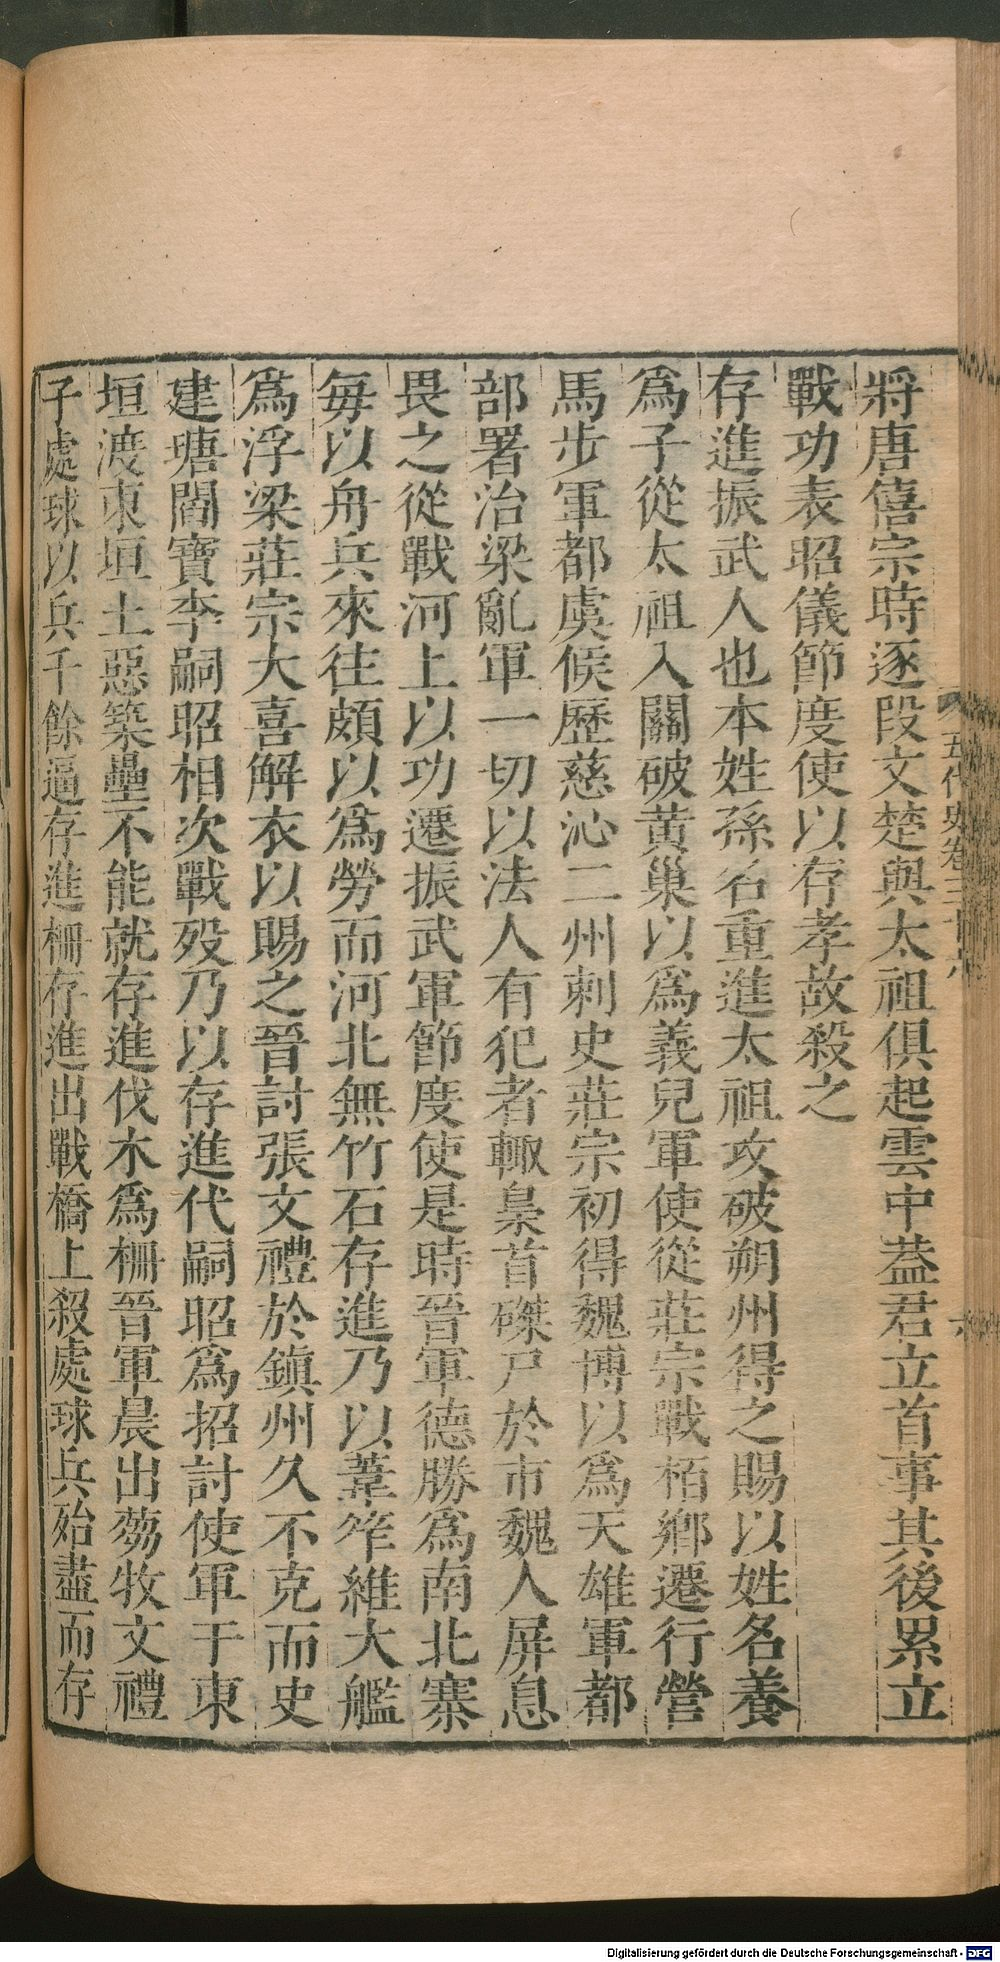 將唐僖宗時逐段文楚與太祖俱起雲中葢君立首事其後累立
戰功表昭儀節度使以存孝故殺之
存進振武人也本姓孫名重進太祖攻破朔州得之賜以姓名養
爲子從太祖入關破黃巢以爲義兒軍使從莊宗戰栢鄉遷行營
馬步軍都虞候歷慈沁二州刺史莊宗初得魏博以爲天雄軍都
部署治梁亂軍一切以法人有犯者輙梟首磔尸於市魏人屏息
畏之從戰河上以功遷振武軍節度使是時晉軍德勝爲南北寨
每以舟兵來往頗以爲勞而河北無竹石存進乃以葦笮維大艦
爲浮梁莊宗大喜解衣以賜之晉討張文禮於鎮州久不克而史
建瑭閻寶李嗣昭相次戰歿乃以存進代嗣昭爲招討使軍于東
垣渡東垣土惡築壘不能就存進伐木爲柵晉軍晨出芻牧文禮
子處球以兵千餘逼存進柵存進出戰橋上殺處球兵殆盡而存
五代史卷三十六
Digitalisierung gefördert durch die Deutsche Forschungsgemeinschaft - DFG